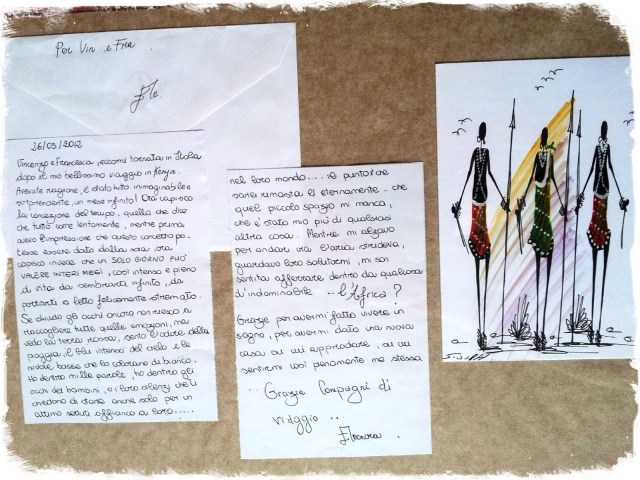 Per Vin e Fra
26/03/2012
Vincenzo e Francesca, eccomi tornata in Italia
dopo il mio bellissimo viaggio in Kenya.
Avevate ragione, è stato tutto inimmaginabile e
sorprendente, un mese infinito! Ora capisco
la concezione del tempo, quella che dice
che tutto corre lentamente, mentre prima
avevo l'impressione che questo concetto po-
tesse essere dato dalla noia, ora
capisco invece che UN SOLO GIORNO PUÒ
VALERE INTERI MESI, così intenso e pieno
di vita da sembrarti infinito, da
portarti a letto felicemente stremato.
Se chiudo gli occhi ancora non riesco a
raccogliere tutte quelle emozioni, ma
vedo la terra rossa, sento l'odore della
pioggia, il blu intenso del cielo e le
nuvole basse che lo colorano di bianco.
Ho dentro mille parole, ho dentro gli
occhi dei bambini, o i loro silenzi che ti
chiedono di stare anche solo per un
attimo seduti affianco a loro.....
nel loro mondo..... al punto che
sarei rimasta lì eternamente... che
quel piccolo spazio mi manca,
che è stato mio più di qualsiasi
altra cosa. Mentre mi alzavo
per andar via l'aria strideva,
guardavo loro salutarmi, mi son
sentita afferrare dentro da qualcosa
d'indominabile ... l'Africa?
Grazie per avermi fatto vivere un
sogno, per avermi dato una nuova
casa su cui approdare, su cui
sentirmi così pienamente me stessa
... Grazie Compagni di
viaggio ...